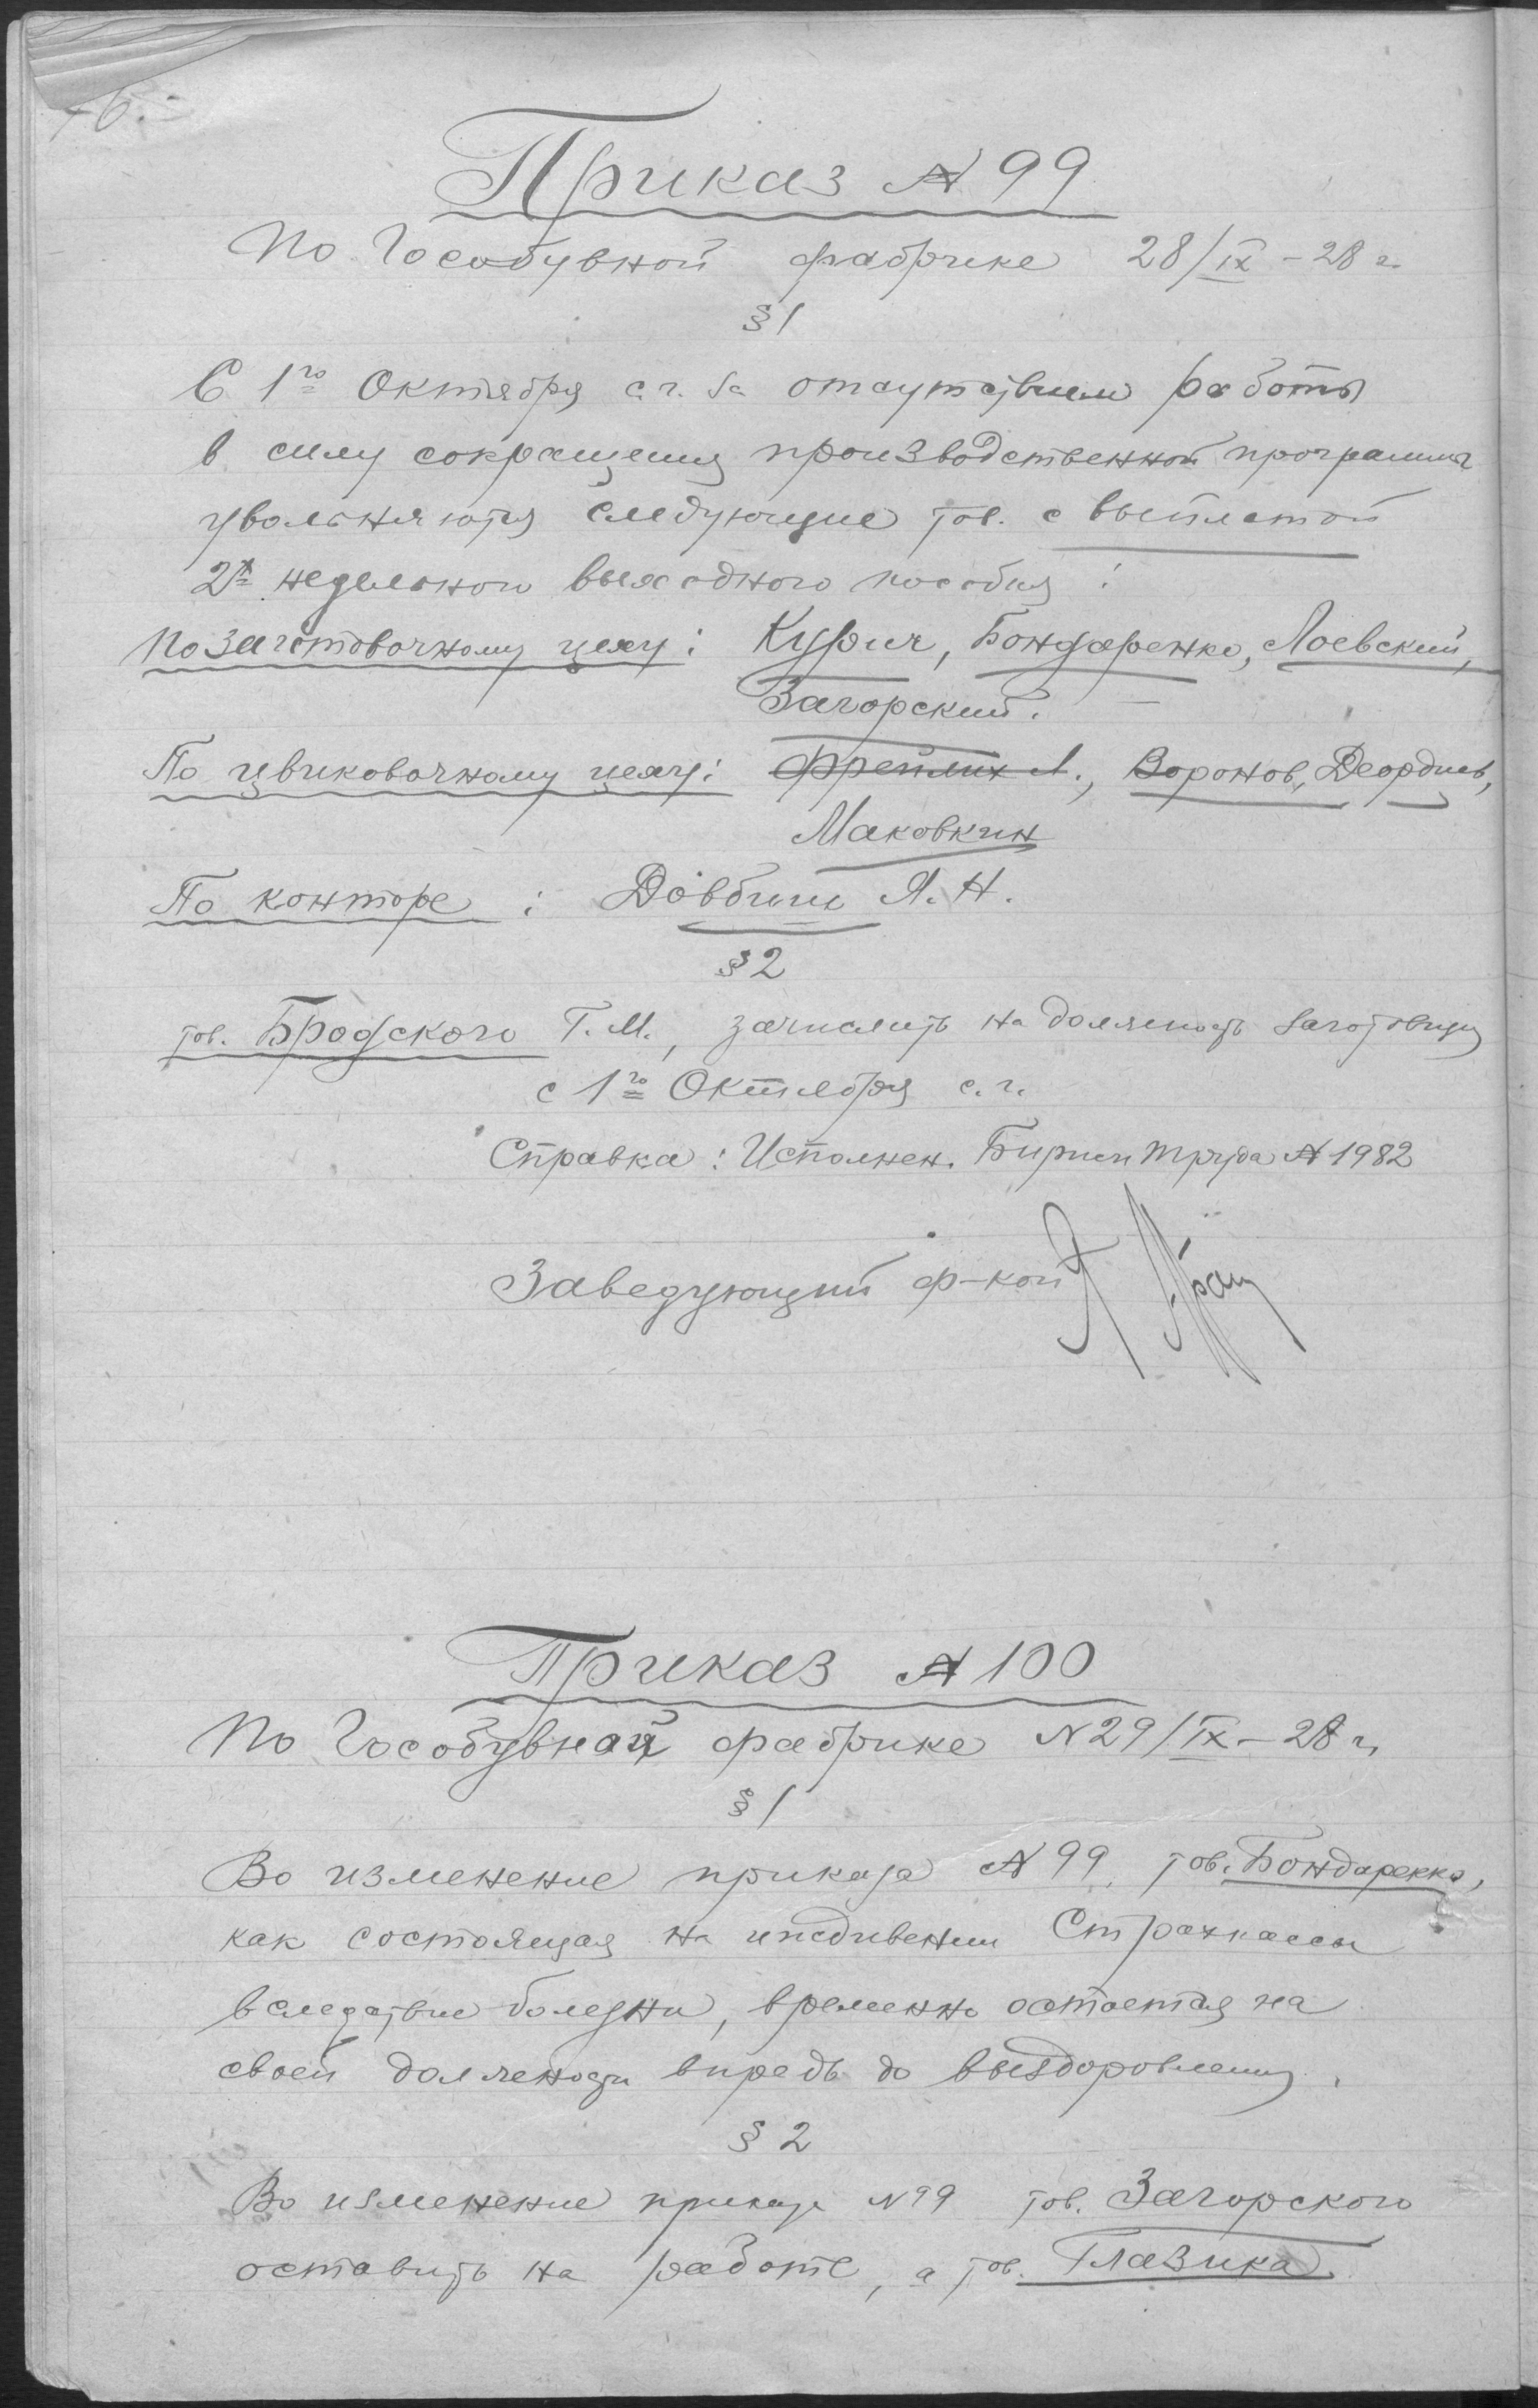 76.
Приказ № 99
По Гособувной фабрике 28/IX – 28 г.
§ 1
С 1го Октября с. г. за отсутствием работы
в силу сокращения производственной программы
увольняются следующие тов. с выплатой
2х недельного выходного пособия :
По заготовочному цеху : Кубрич, Бондаренко, Лоевский,
Загорский.
По цвиковочному цеху : Фрейлих Л., Воронов, Деордиев,
Маковкин
По конторе : Довбиш Я. Н.
§ 2
тов. Бродского Г. М., зачислить на должность заготовщ
с 1го Октября с. г.
Справка : Исполнен. Биржи труда № 1982
Заведующий ф-кой
Приказ № 100
По Гособувной фабрике № 29/IX – 28 г.
§ 1
Во изменение приказа № 99, тов. Бондаренко,
как состоящая на иждивении Страхкассы
вследствие болезни, временно остается на
своей должности впредь до выздоровления.
§ 2
Во изменение приказа № 99 тов. Загорского
оставить на работе, а тов. Глазика